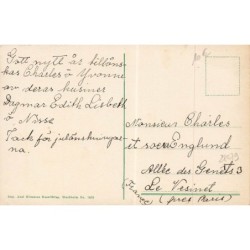 Gott nytt år tillöns-
kas Charles o Yvonne
av deras kusiner
Dagmar Edith Lisbeth
o Nisse
Tack för julönskningar-
na.
Monsieur Charles
et soeur Englund
Allée des Genêts 3
Le Vésinet
(France) (près Paris)